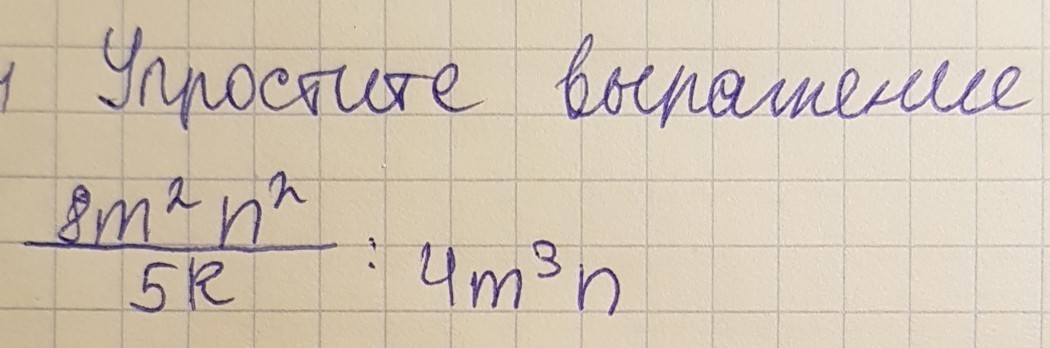 1 Упростите выражение
8m² n²
5k : 4m³n